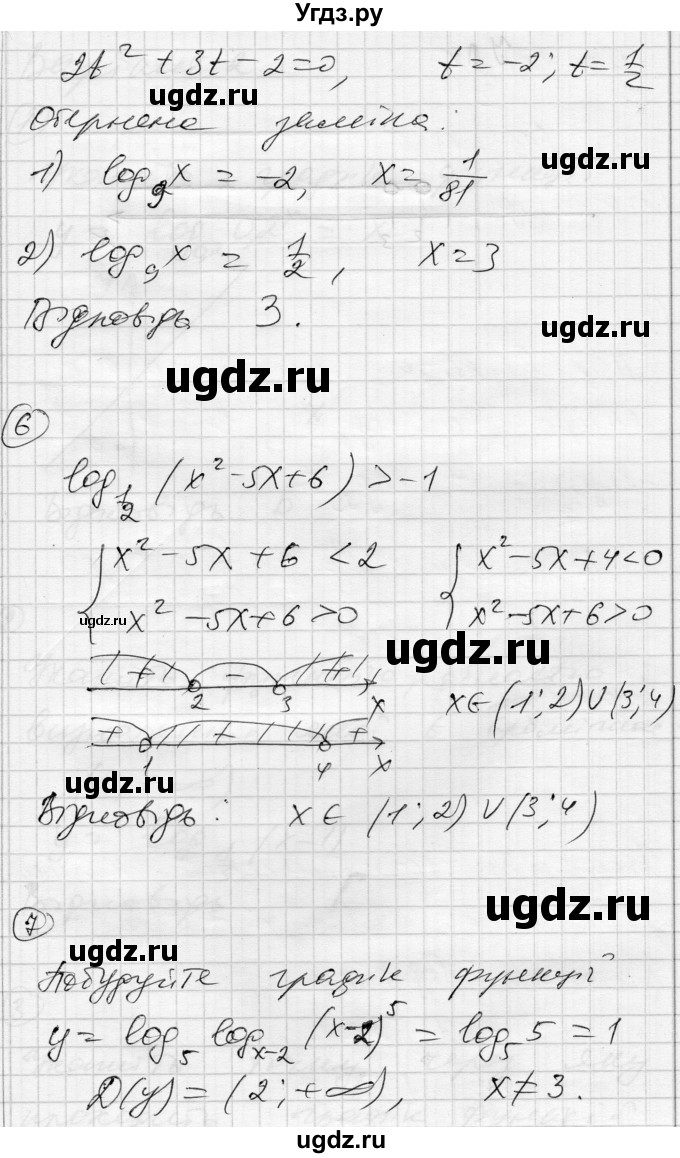 Угдз.ру
2t² + 3t - 2 = 0,   t = -2; t = 1/2
ugdz.ru
Обернена заміна:
ugdz.ru
1) log₉x = -2,   x = 1/81
2) log₉x = 1/2,   x = 3
Відповідь 3.
ugdz.ru
ugdz.ru
ugdz.ru
6
log_{1/2} (x² - 5x + 6) > -1
ugdz.ru
{ x² - 5x + 6 < 2   { x² - 5x + 4 < 0
ugdz.ru
x² - 5x + 6 > 0   x² - 5x + 6 > 0
ugdz.ru
+ - +
2 3 x   x ∈ (1; 2) ∪ (3; 4)
+ - +
1 4 x
ugdz.ru
Відповідь: x ∈ (1; 2) ∪ (3; 4)
ugdz.ru
7
ugdz.ru
Побудуйте графік функції
y = log₅ log_{x-2} (x-2)⁵ = log₅ 5 = 1
ugdz.ru
D(y) = (2; +∞),   x ≠ 3.
ugdz.ru